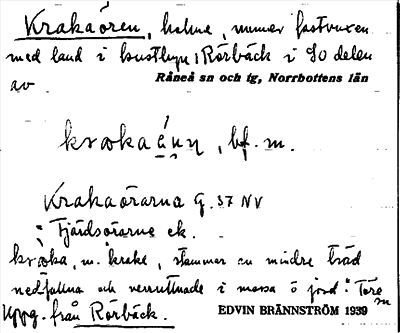 Krakaören, holme, numer fastvuxen
med land i kustbyn Rörbäck i SO delen
av Råneå sn och tg, Norrbottens län
krakaǫ́nn, bf. m.
Krakaörarna G. 37 NV
: Fjärdsörarne ek.
kraka, m. krake, stammar av mindre träd
nedfallna och verruttnade i mossa o jord. Töre sn
Uppg. från Rörbäck.
EDVIN BRÄNNSTRÖM 1939